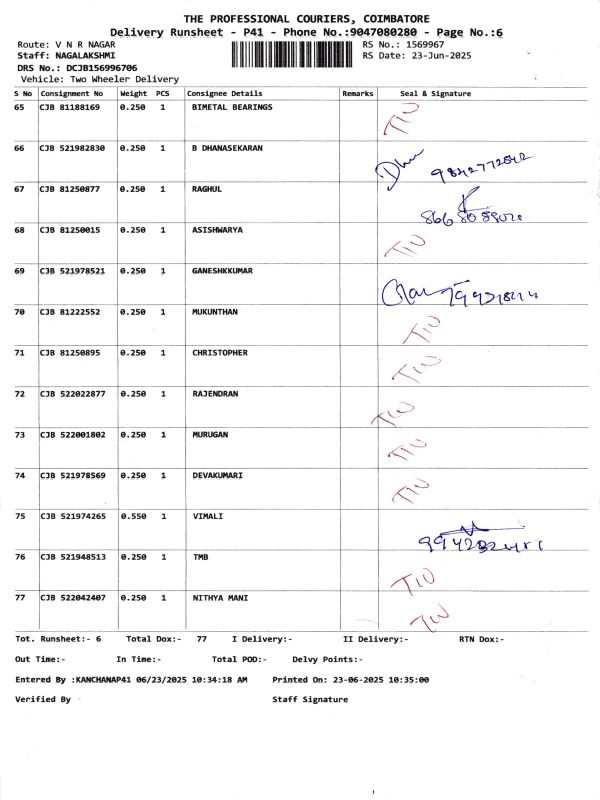 THE PROFESSIONAL COURIERS, COIMBATORE
Delivery Runsheet - P41 - Phone No.:9047080280 - Page No.:6
Route: V N R NAGAR RS No.: 1569967
Staff: NAGALAKSHMI RS Date: 23-Jun-2025
DRS No.: DCJB156996706
Vehicle: Two Wheeler Delivery
S No Consignment No Weight PCS Consignee Details Remarks Seal & Signature
65 CJB 81188169 0.250 1 BIMETAL BEARINGS
66 CJB 521982830 0.250 1 B DHANASEKARAN
67 CJB 81250877 0.250 1 RAGHUL
68 CJB 81250015 0.250 1 ASISHWARYA
69 CJB 521978521 0.250 1 GANESHKKUMAR
70 CJB 81222552 0.250 1 MUKUNTHAN
71 CJB 81250895 0.250 1 CHRISTOPHER
72 CJB 522022877 0.250 1 RAJENDRAN
73 CJB 522001802 0.250 1 MURUGAN
74 CJB 521978569 0.250 1 DEVAKUMARI
75 CJB 521974265 0.550 1 VIMALI
76 CJB 521948513 0.250 1 TMB
77 CJB 522042407 0.250 1 NITHYA MANI
Tot. Runsheet:- 6 Total Dox:- 77 I Delivery:- II Delivery:- RTN Dox:-
Out Time:- In Time:- Total POD:- Delvy Points:-
Entered By :KANCHANAP41 06/23/2025 10:34:18 AM Printed On: 23-06-2025 10:35:00
Verified By Staff Signature